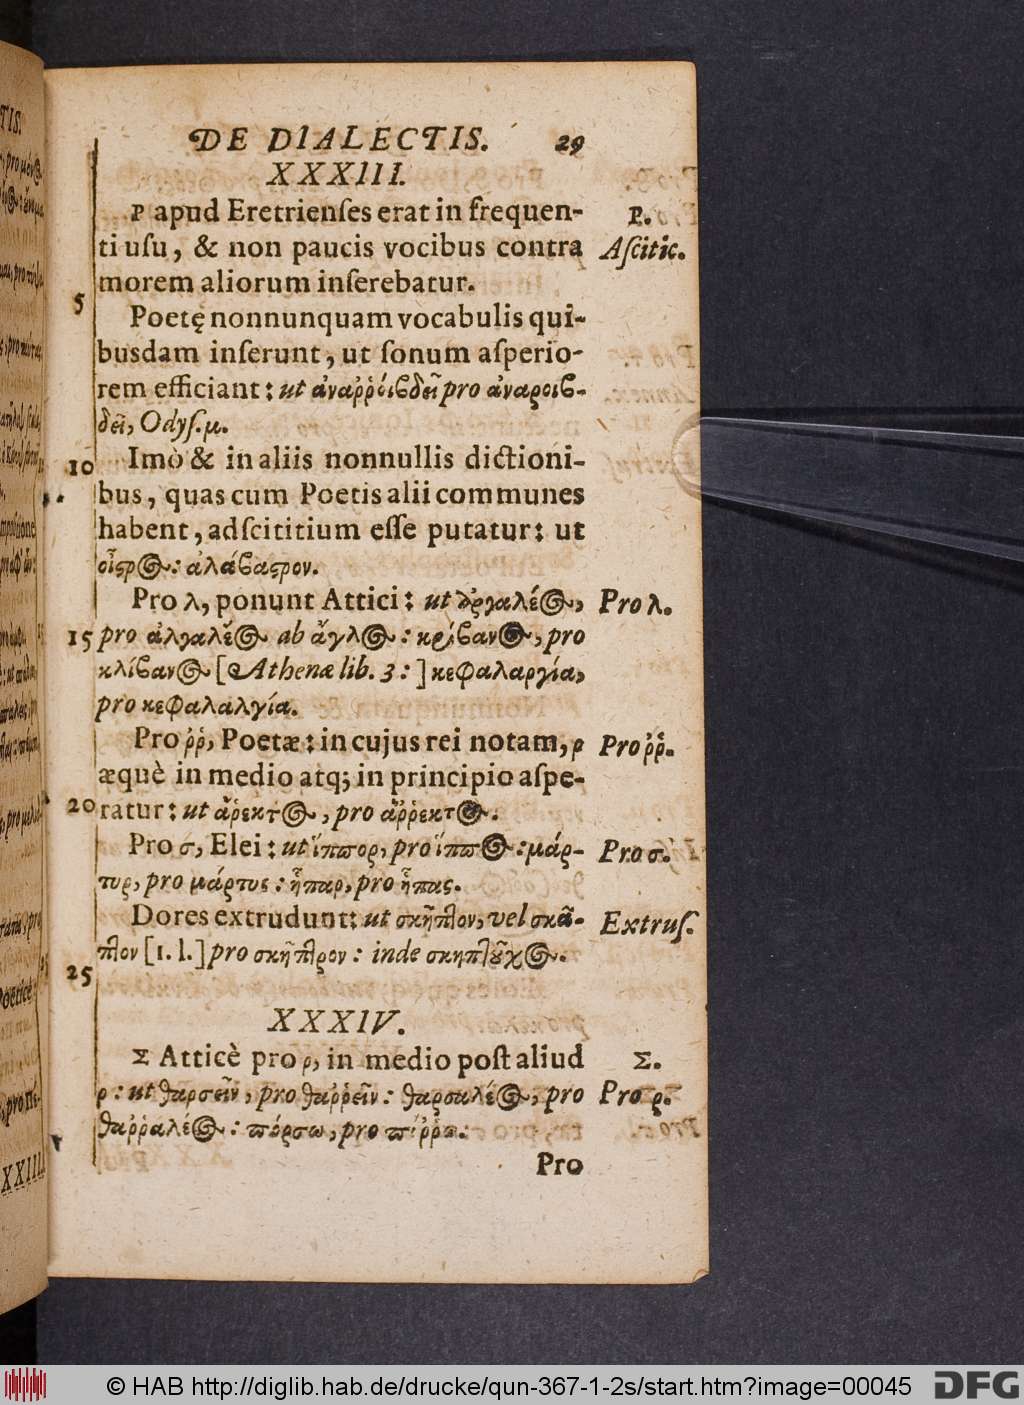 DE DIALECTIS. 29
XXXIII.
Ρ apud Eretrienſes erat in frequen-
ti uſu, & non paucis vocibus contra
morem aliorum inſerebatur.
Ρ.
Aſcitic.
5
Poetę nonnunquam vocabulis qui-
busdam inſerunt, ut ſonum aſperio-
rem efficiant: ut ἀναῤῥοιβδεῖ pro ἀναροιβ-
δεῖ, Odyſ. μ.
10
Imò & in aliis nonnullis dictioni-
bus, quas cum Poetis alii communes
habent, adſcititium eſſe putatur: ut
οἶςρος: ἀλάβαςρον.
Pro λ, ponunt Attici: ut ἀργαλέος,
Pro λ.
15
pro ἀλγαλέος ab ἄγλος: κρίβανος, pro
κλίβανος [Athenæ lib. 3:] κεφαλαργία,
pro κεφαλαλγία.
Pro ῤῥ, Poetæ: in cujus rei notam, ρ
Pro ῤῥ.
æquè in medio atq; in principio aſpe-
20
ratur: ut ἄῥεκτος, pro ἄῤῥεκτος.
Pro σ, Elei: ut ἵππορ, pro ἵππος: μάρ-
Pro σ.
τυρ, pro μάρτυς: ἧπαρ, pro ἧπας.
Dores extrudunt: ut σκῆπτον, vel σκᾶ-
Extruſ.
πτον [1. l.] pro σκῆπτρον: inde σκηπτοῦχος.
25
XXXIV.
Σ Atticè pro ρ, in medio poſt aliud
Σ.
ρ: ut θαρσεῖν, pro θαῤῥεῖν: θαρσαλέος, pro
Pro ρ.
θαῤῥαλέος: πόρσω, pro πόῤῥω:
Pro
© HAB http://diglib.hab.de/drucke/qun-367-1-2s/start.htm?image=00045
DFG